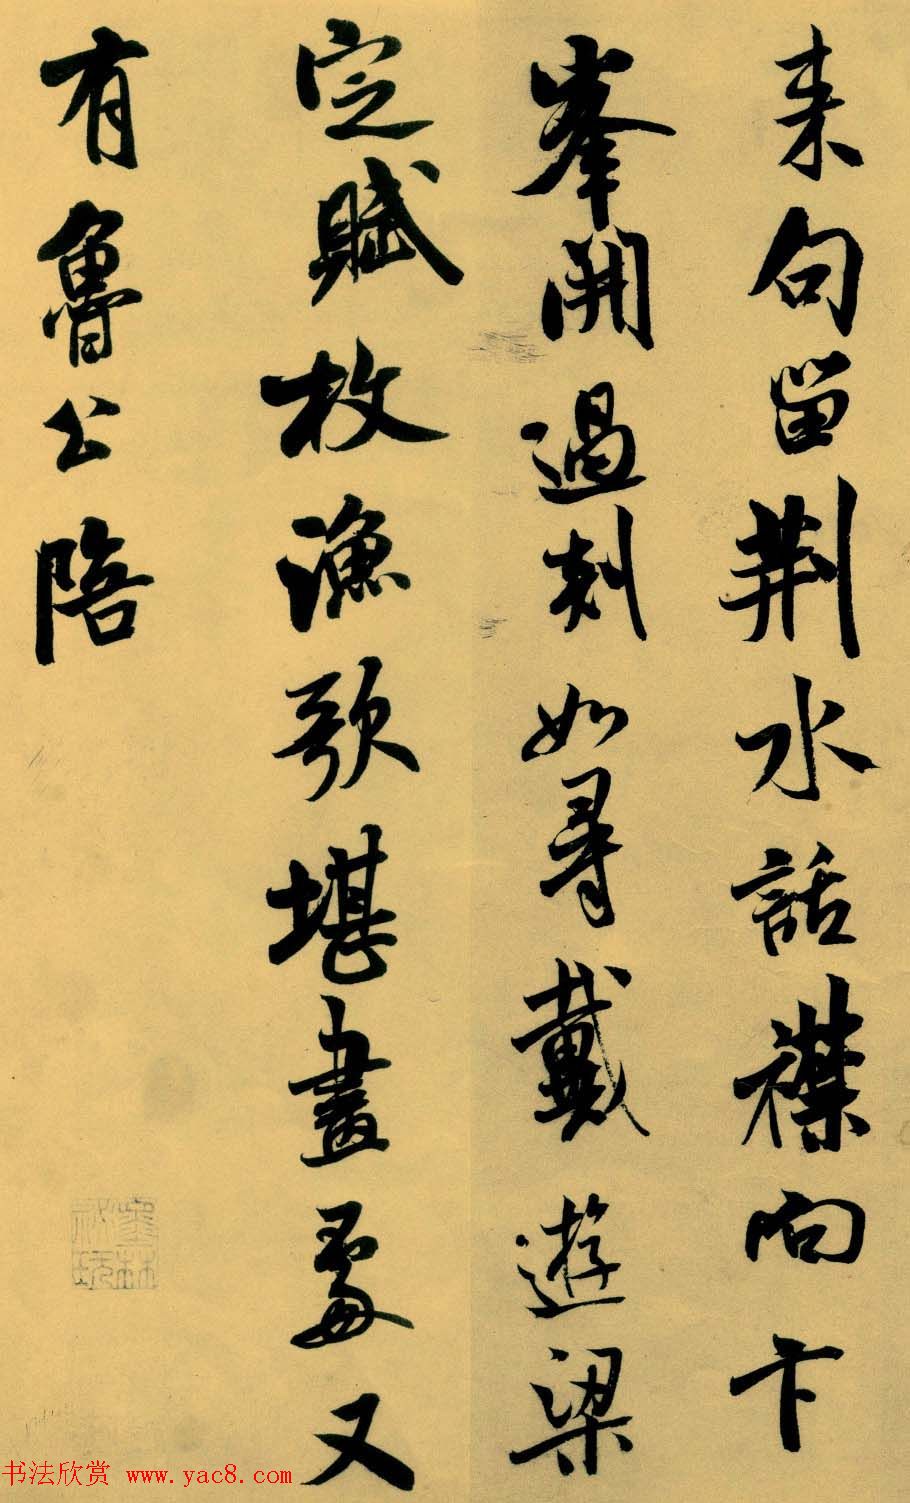 来句留荆水話襟向卞
峯開過剡如尋戴遊梁
定賦枚漁歌堪畫處又
有魯公陪
墨林
秘玩
书法欣赏 www.yac8.com